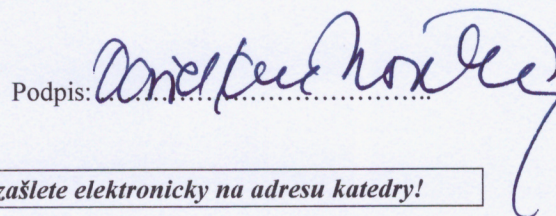 Podpis:
zašlete elektronicky na adresu katedry!